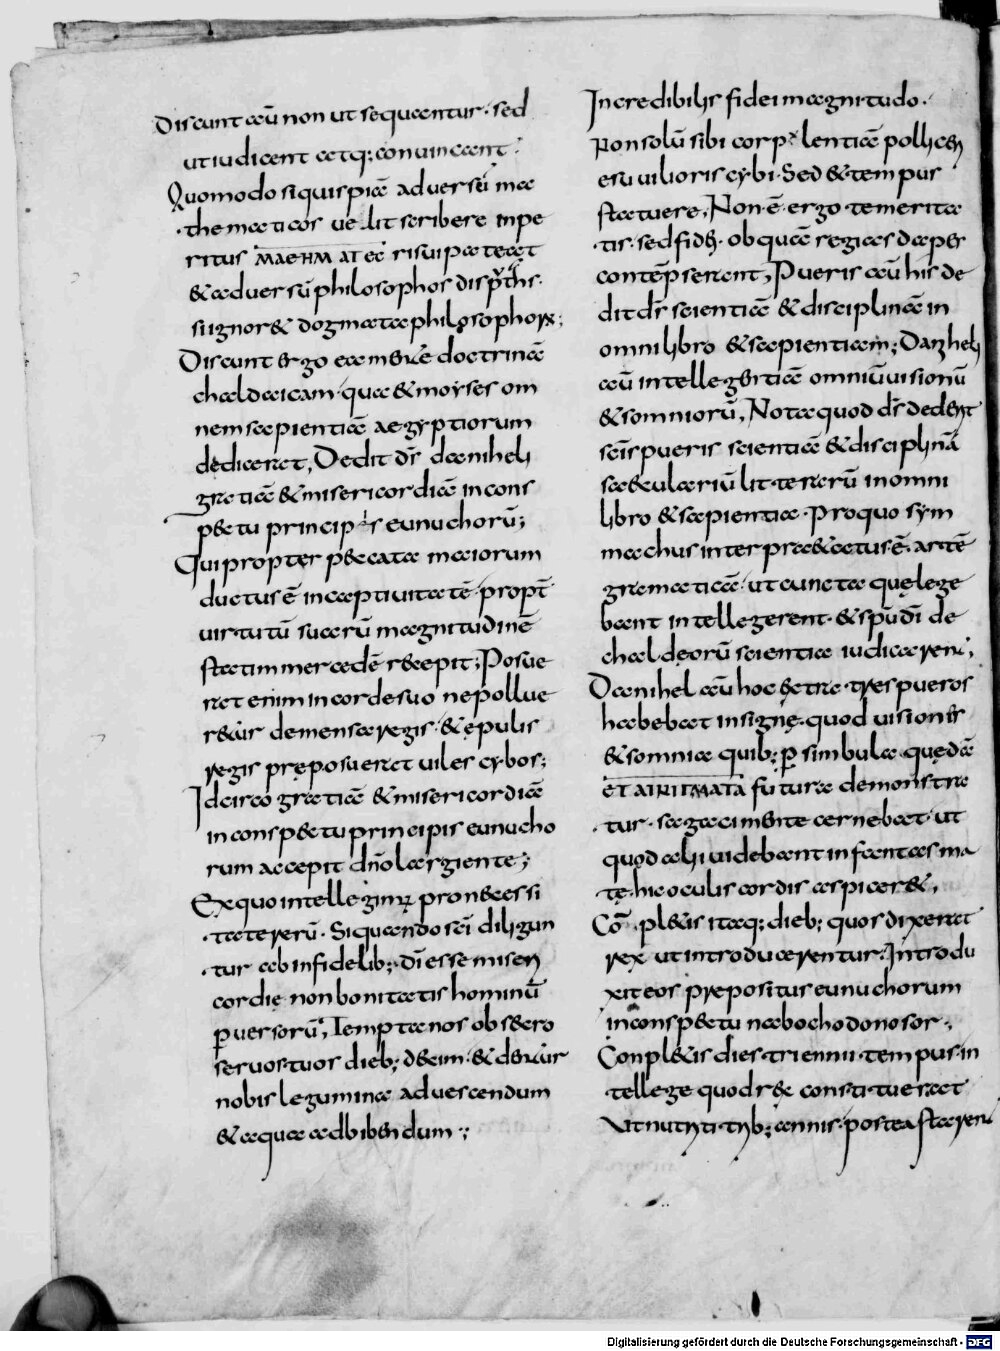 Discunt aut̄ non ut sequantur · sed
ut iudicent atq; conuincant ·
Quomodo si quispiā aduersū ma
thematicos uelit scribere inpe
ritus ΜΑΘΗΜΑΤΕC risui pateat
& aduersū philosophos disputās ·
si ignor& dogmata philosophorꝝ ;
Discunt ergo ea mente doctrinā
chaldaicam · qua & moyses om
nem sapientiā aegyptiorum
didicerat , Dedit d̄s daniheli
gratiā & misericordiā in cons
pectu principis eunuchorū ;
Qui propter peccata maiorum
ductus ē in captiuitatē · propt̄
uirtutū suarū magnitudinē
statim mercedē recepit ; Posue
rat enim in corde suo ne pollue
r&ur de mensa regis · & epulis
regis pręposuerat uiles cybos ;
Idcirco gratiā & misericordiā
in conspectu principis eunucho
rum accepit dn̄o largiente ;
Ex quo intellegimꝰ pro necessi
tate rerū · Si quando sc̄i diligun
tur ab infidelib; · dī esse miseri
cordię non bonitatis hominū
ꝑuersorū , Tempta nos obsecro
seruos tuos dieb; decim · & dentur
nobis legumina ad uescendum
& aqua ad bibendum ·;
Incredibilis fidei magnitudo ·
Non solū sibi corpulentiā pollicēri
esu uilioris cybi · Sed & tempus
statuere , Non ē ergo temerita
tis · sed fidei · ob quā regias dapes
contēpserant , Pueris aut̄ his de
dit d̄s scientiā & disciplinā in
omni libro & sapientiam ; Daniheli
aut̄ intellegentiā omniū uisionū
& somniorū , Nota quod d̄s dederit
sc̄is pueris scientiā & disciplinā
saeculariū litterarū in omni
libro & sapientia · Pro quo sym
machus interpretatus ē · artē
grāmaticā · ut cuncta quę lege
bant intellegerent · & sp̄u dī de
chaldeorū scientia iudicarent ;
Danihel aut̄ hoc extra tres pueros
habebat insigne · quod uisiones
& somnia quib; ꝑ simbula quędā
ET AINIΓMATA futura demonstran
tur · sagaci mente cernebat · ut
quod alii uidebant in fantasma
te hic oculis cordis aspicer& ,
Cō · pl&is itaq; dieb; quos dixerat
rex ut introducerentur . Introdu
xit eos prepositus eunuchorum
in conspectu nabochodonosor ·,
Conpl&is dies triennii tempus in
tellege quod rex constituerat
Ut nutriti trib; annis · postea starent